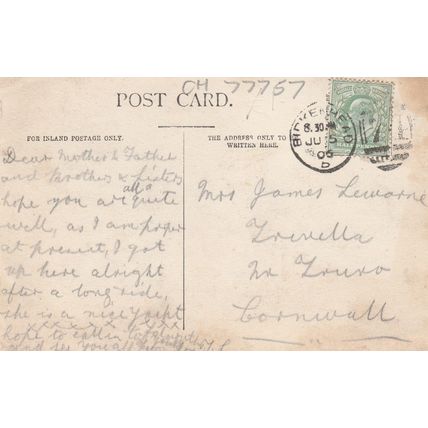 CH 77757
POST CARD.
FOR INLAND POSTAGE ONLY.
THE ADDRESS ONLY TO
WRITTEN HERE.
BIRKENHEAD
8.30
JU
09
D
Dear Mother & Father
and Brothers & sisters
hope you are all quite
well, as I am
at present, I got
up here alright
after a long ride,
she is a nice
hope to
and see you all
Mrs James Lewarne
Trevella
Nr Truro
Cornwall